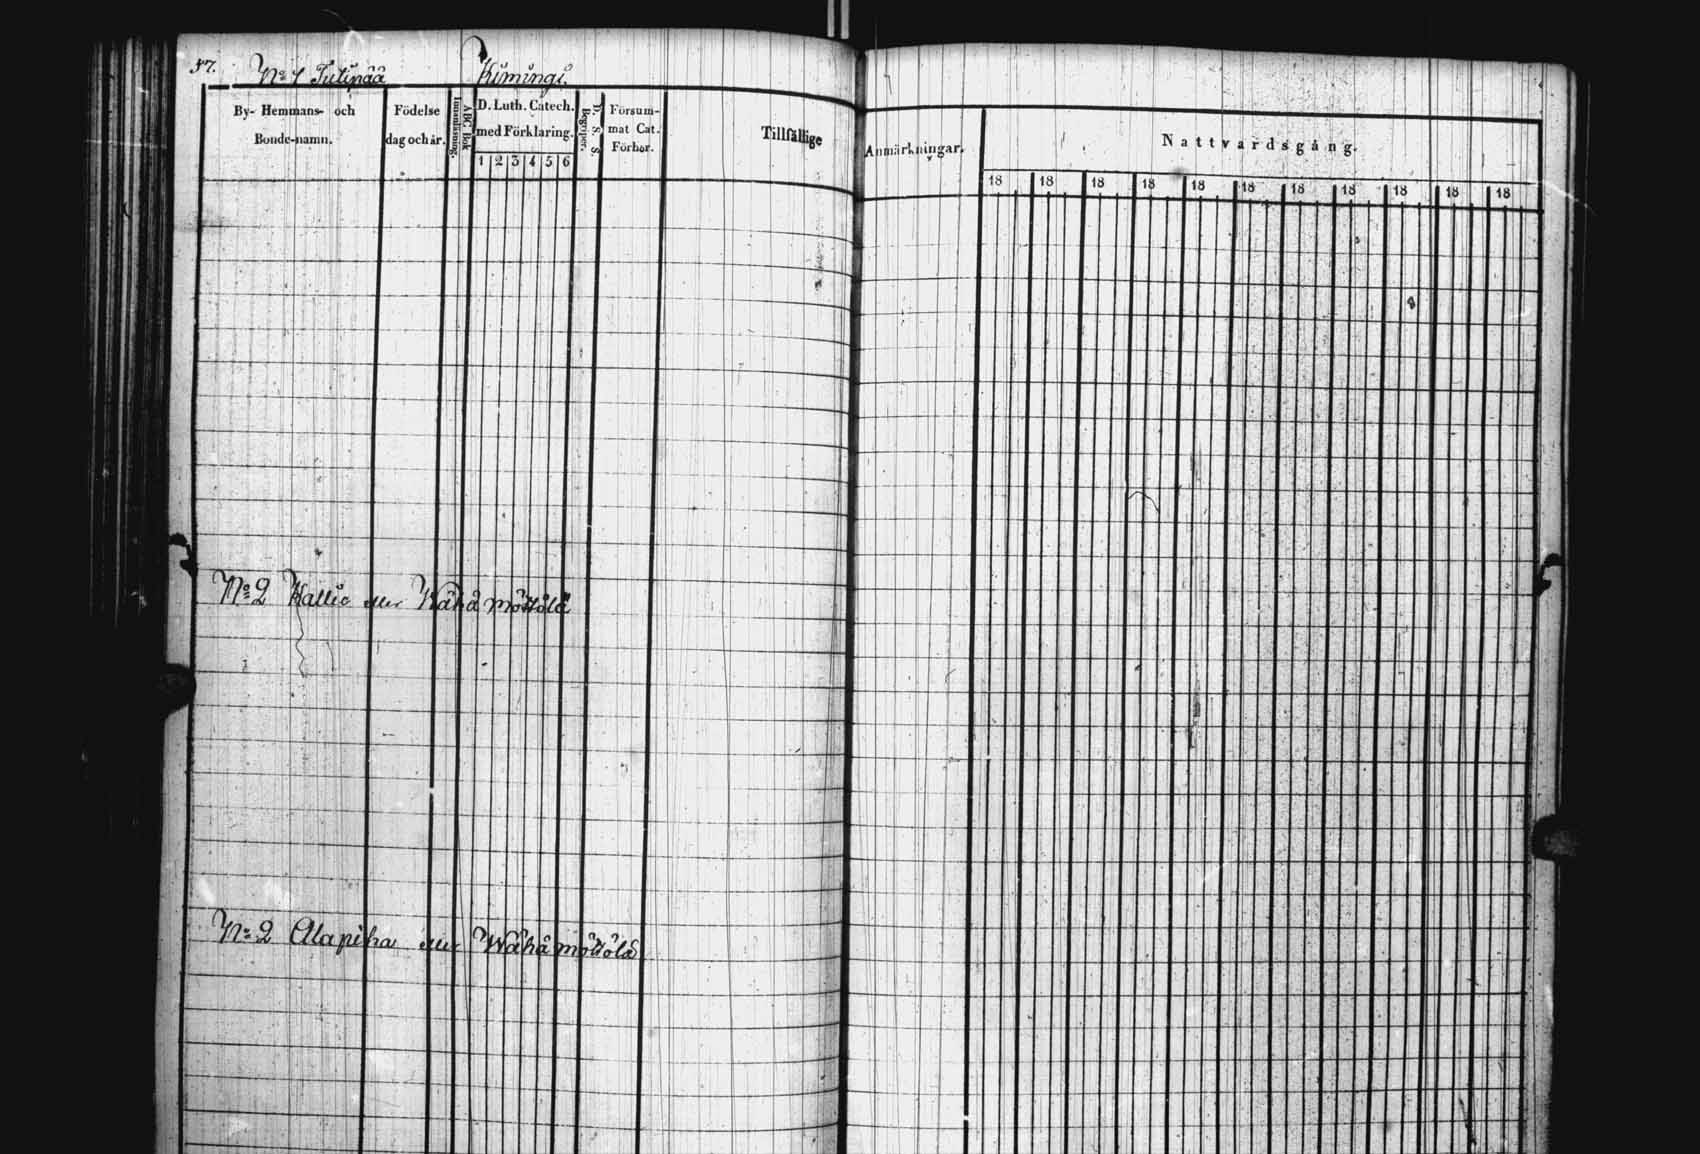 57. No 1 Tulipää Kiimingi.
By- Hemmans- och Bonde-namn.
Födelse dag och år.
ABC Bok Innanläsning.
D. Luth. Catech. med Förklaring.
1 2 3 4 5 6
D. S. S. Begriper.
Försum- mat Cat. Förhör.
Tillfällige Anmärkningar.
Nattvardsgång.
18 18 18 18 18 18 18 18 18 18 18
No 2 Kallio eller Wähä möttölä
No 2 Alapiha eller Wähä möttölä